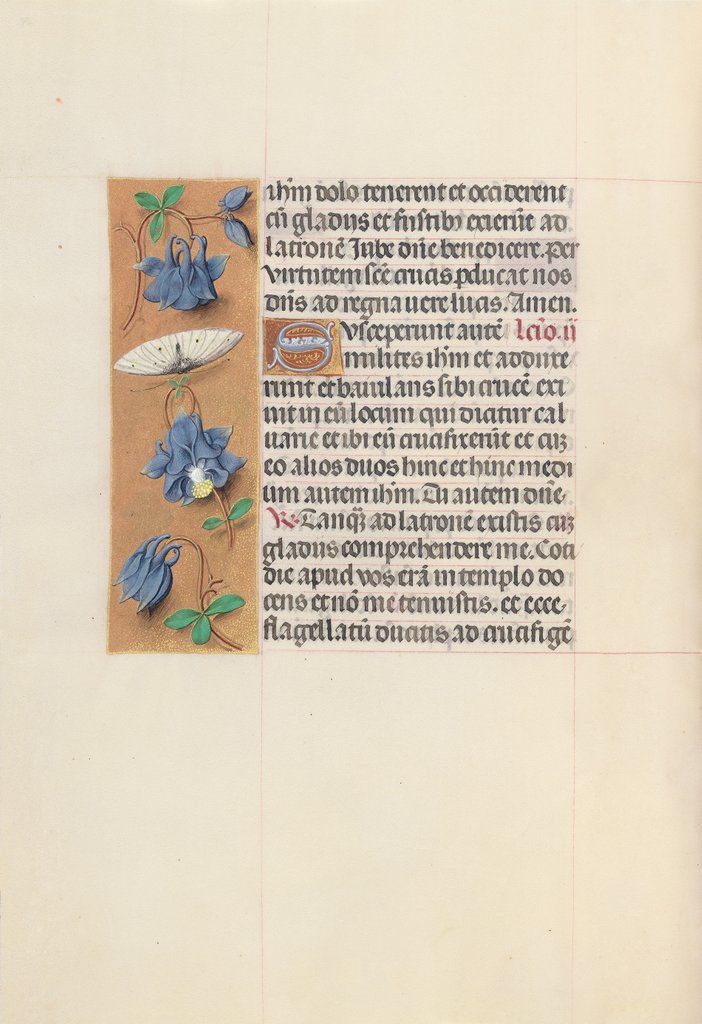 ih̄m dolo tenerent et occiderent
cū gladiis et fustibꝫ exierūt ad
latronē Jube dn̄e benedicere. Per
virtutem sc̄e crucis ꝑducat nos
dn̄s ad regna uere lucis. Amen.
Susceperunt autē lcīo. ij
milites ih̄m et adduxe
runt et baiulans sibi crucē exi
uit in eū locum qui dicitur cal
uarie et ibi eū crucifixerūt et cuꝫ
eo alios duos hinc et hinc medi
um autem ih̄m. Tu autem dn̄e
R. Tanqꝫ ad latronē existis cuꝫ
gladiis comprehendere me. Coti
die apud vos erā in templo do
cens et nō me tenuistis. et ecce
flagellatū ducitis. ad crucifigē